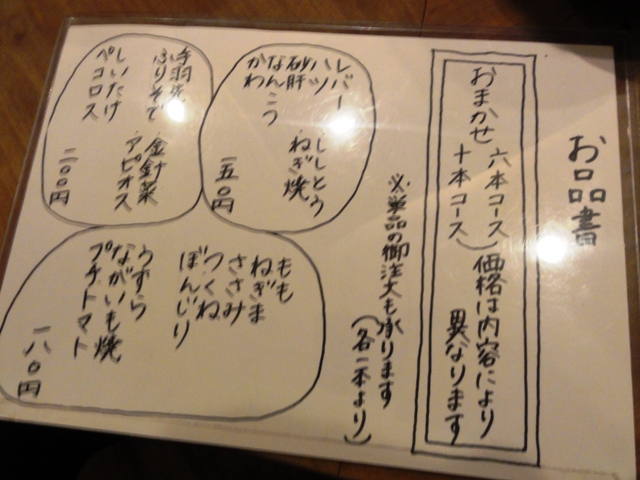 お品書
おまかせ 六本コース
十本コース
価格は内容により
異なります
※単品の御注文も承ります
(各一本より)
レバー
ハツ
砂肝
なんこつ
かわ
ししとう
ねぎ焼
一五〇円
もも
ねぎま
ささみ
つくね
ぼんじり
うずら
ながいも焼
プチトマト
一八〇円
手羽先
ふりそで
しいたけ
ペコロス
金針菜
アピオス
二〇〇円